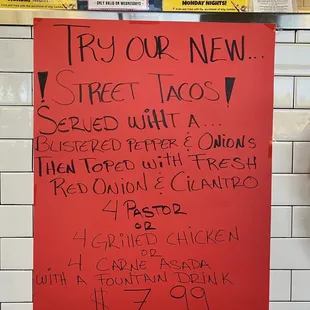 ONLY VALID ON WEDNESDAYS
MONDAY NIGHTS!
TRY OUR NEW...
! STREET TACOS!
SERVED WITH A...
BLISTERED PEPPER & ONIONS
THEN TOPED WITH FRESH
RED ONION & CILANTRO
4 PASTOR
OR
4 GRILLED CHICKEN
OR
4 CARNE ASADA
WITH A FOUNTAIN DRINK
$7.99